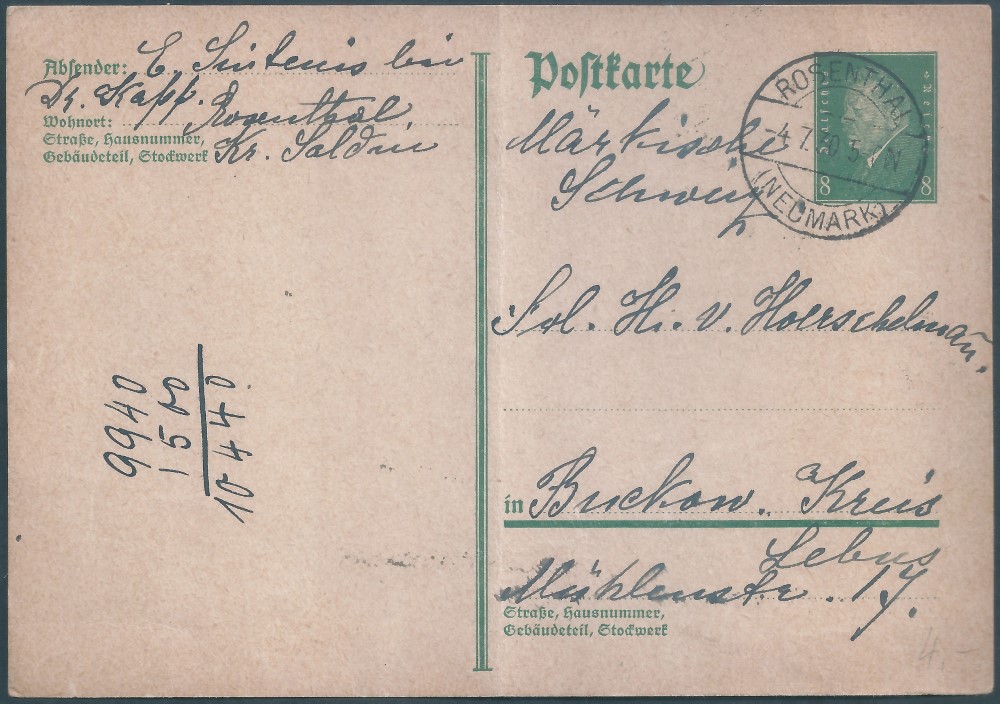 Absender: E. Sintenis bei
Kr. Kapp. Rosenthal,
Wohnort:
Straße, Hausnummer,
Gebäudeteil, Stockwerk Kr. Soldin
9940
1500
10440
Postkarte
Märkische
Schweiz
ROSENTHAL
-4.7.30 5- N
(NEUMARK)
Deutsches Reich
8 8
Frl. H. v. Hoerschelmann.
in Buckow. Kreis
Lebus
Mühlenstr. 17.
Straße, Hausnummer,
Gebäudeteil, Stockwerk
4.-